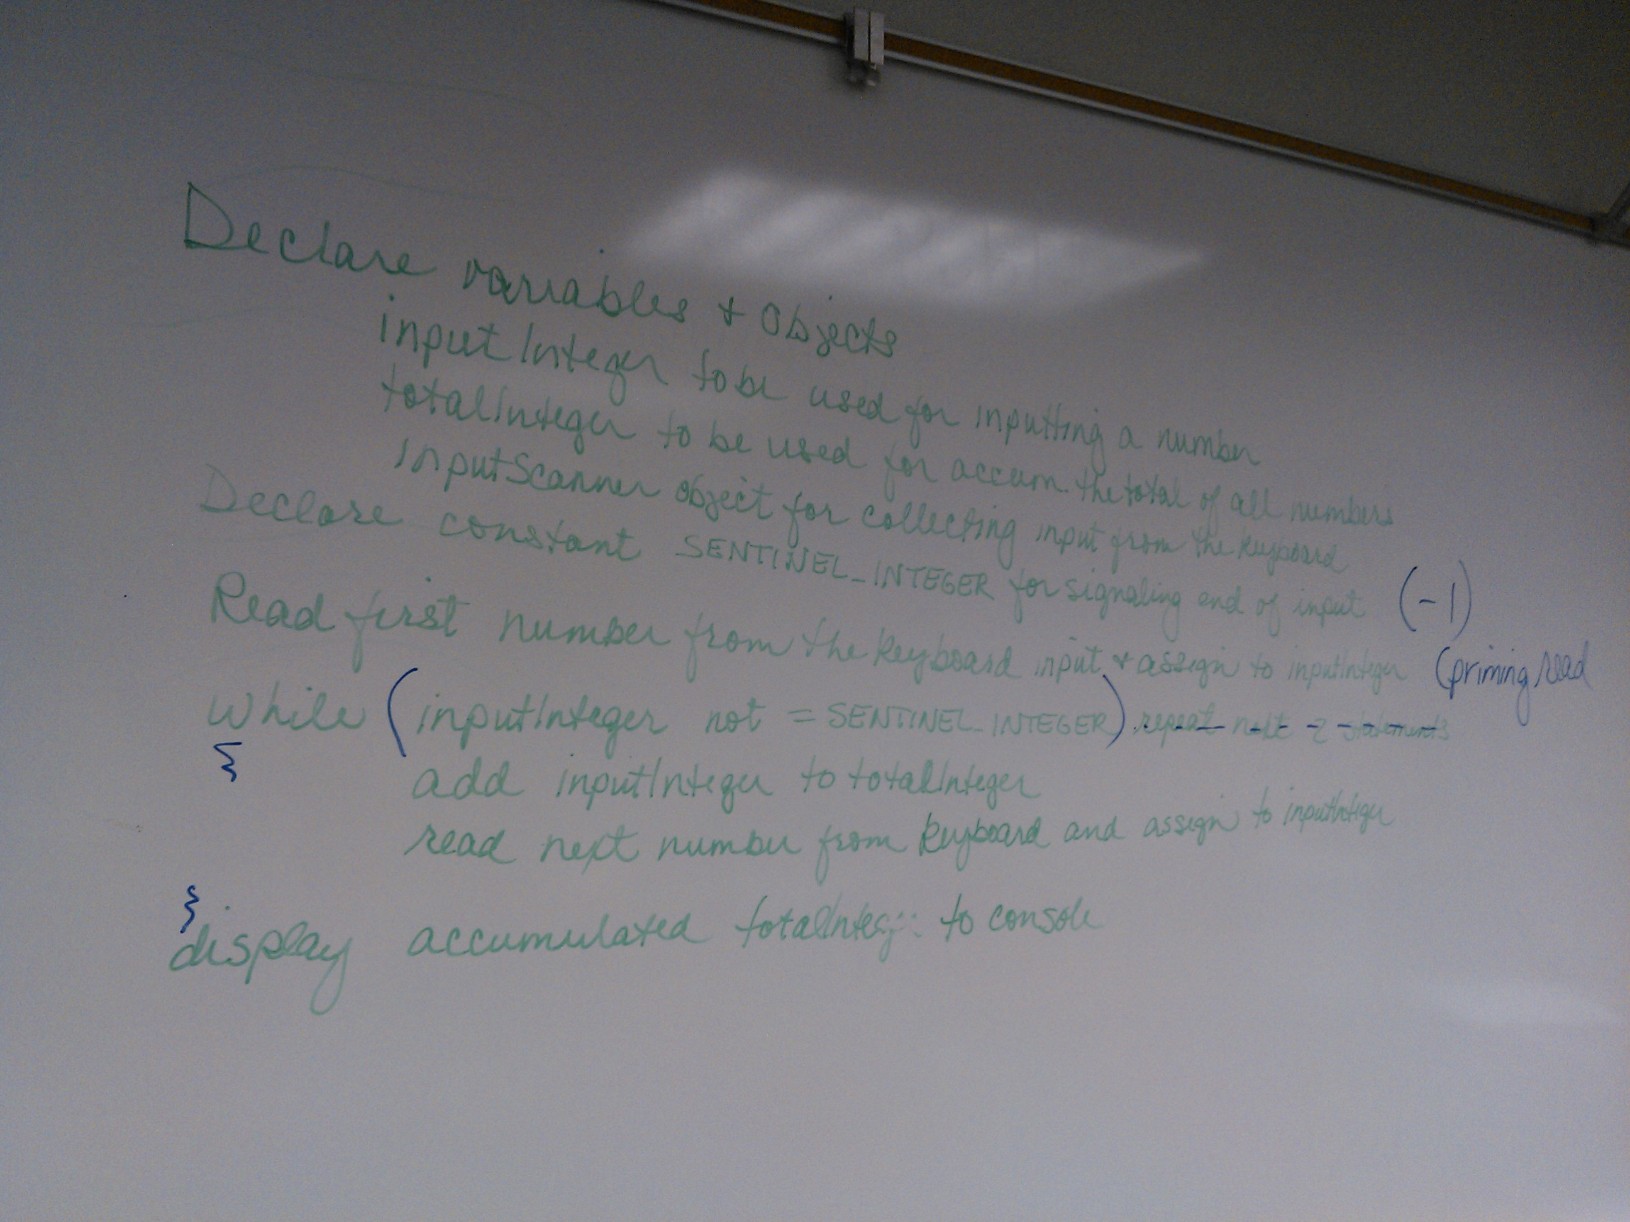 Declare variables + Objects
inputInteger to be used for inputting a number
totalInteger to be used for accum. the total of all numbers
inputScanner object for collecting input from the keyboard
Declare constant SENTINEL_INTEGER for signaling end of input (-1)
Read first number from the keyboard input + assign to inputInteger (priming read
while (inputInteger not = SENTINEL_INTEGER) repeat next 2 statements
{
add inputInteger to totalInteger
read next number from keyboard and assign to inputInteger
}
display accumulated totalInteg to console